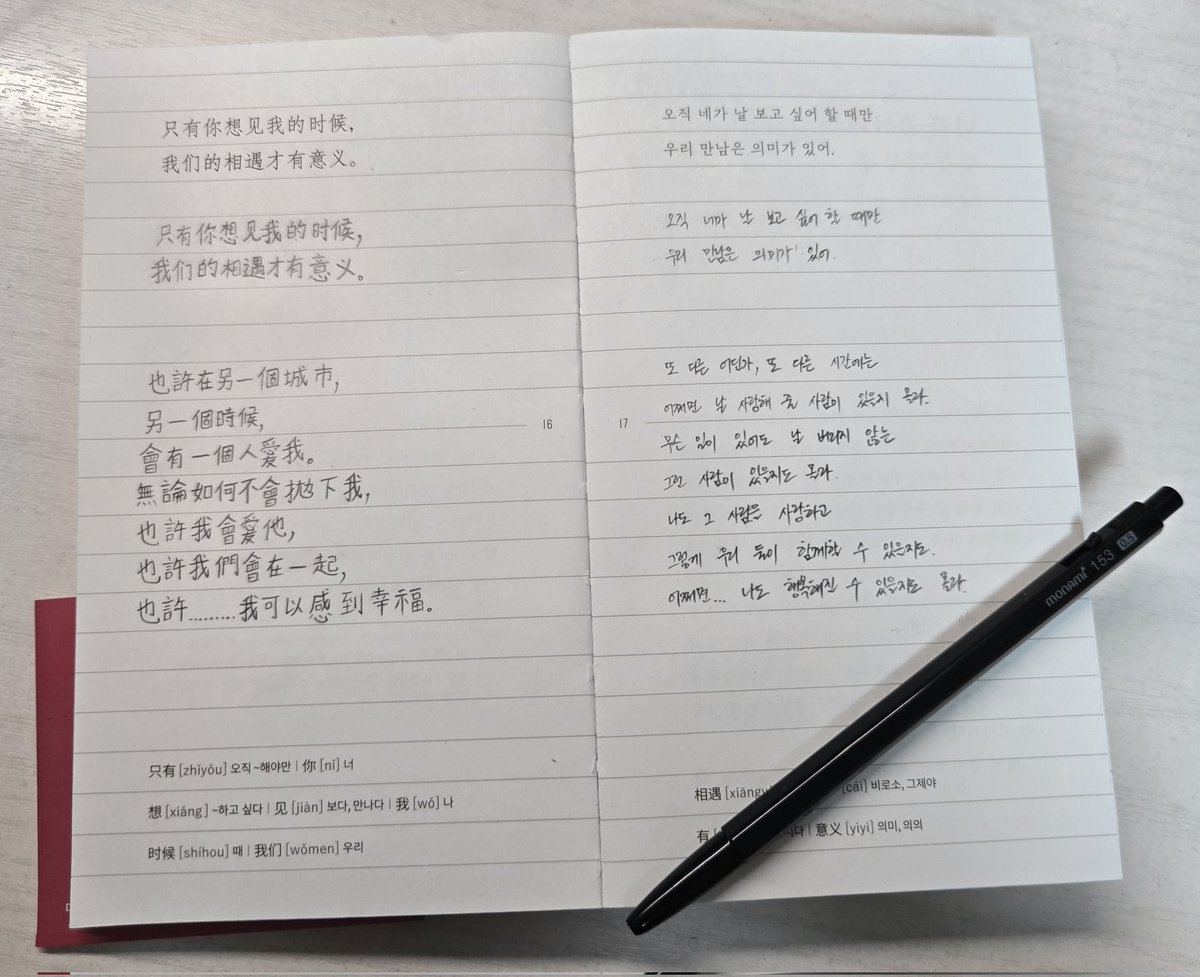 只有你想见我的时候,
我们的相遇才有意义。
只有你想见我的时候,
我们的相遇才有意义。
也許在另一個城市,
另一個時候,
會有一個人愛我。
無論如何不會拋下我,
也許我會愛他,
也許我們會在一起,
也許.........我可以感到幸福。
16
只有 [zhǐyǒu] 오직 ~해야만 | 你 [nǐ] 너
想 [xiǎng] ~하고 싶다 | 见 [jiàn] 보다, 만나다 | 我 [wǒ] 나
时候 [shíhou] 때 | 我们 [wǒmen] 우리
오직 네가 날 보고 싶어 할 때만
우리 만남은 의미가 있어.
오직 네가 날 보고 싶어 할 때만
우리 만남은 의미가 있어.
또 다른 어딘가, 또 다른 시간에는
어쩌면 날 사랑해 줄 사람이 있을지 몰라.
무슨 일이 있어도 날 버리지 않는
그런 사람이 있을지도 몰라.
나도 그 사람을 사랑하고
그렇게 우리 둘이 함께할 수 있을지도.
어쩌면... 나도 행복해질 수 있을지도 몰라.
17
相遇 [xiāngy [cái] 비로소, 그제야
有 | 意义 [yìyì] 의미, 의의
monami 153 0.5